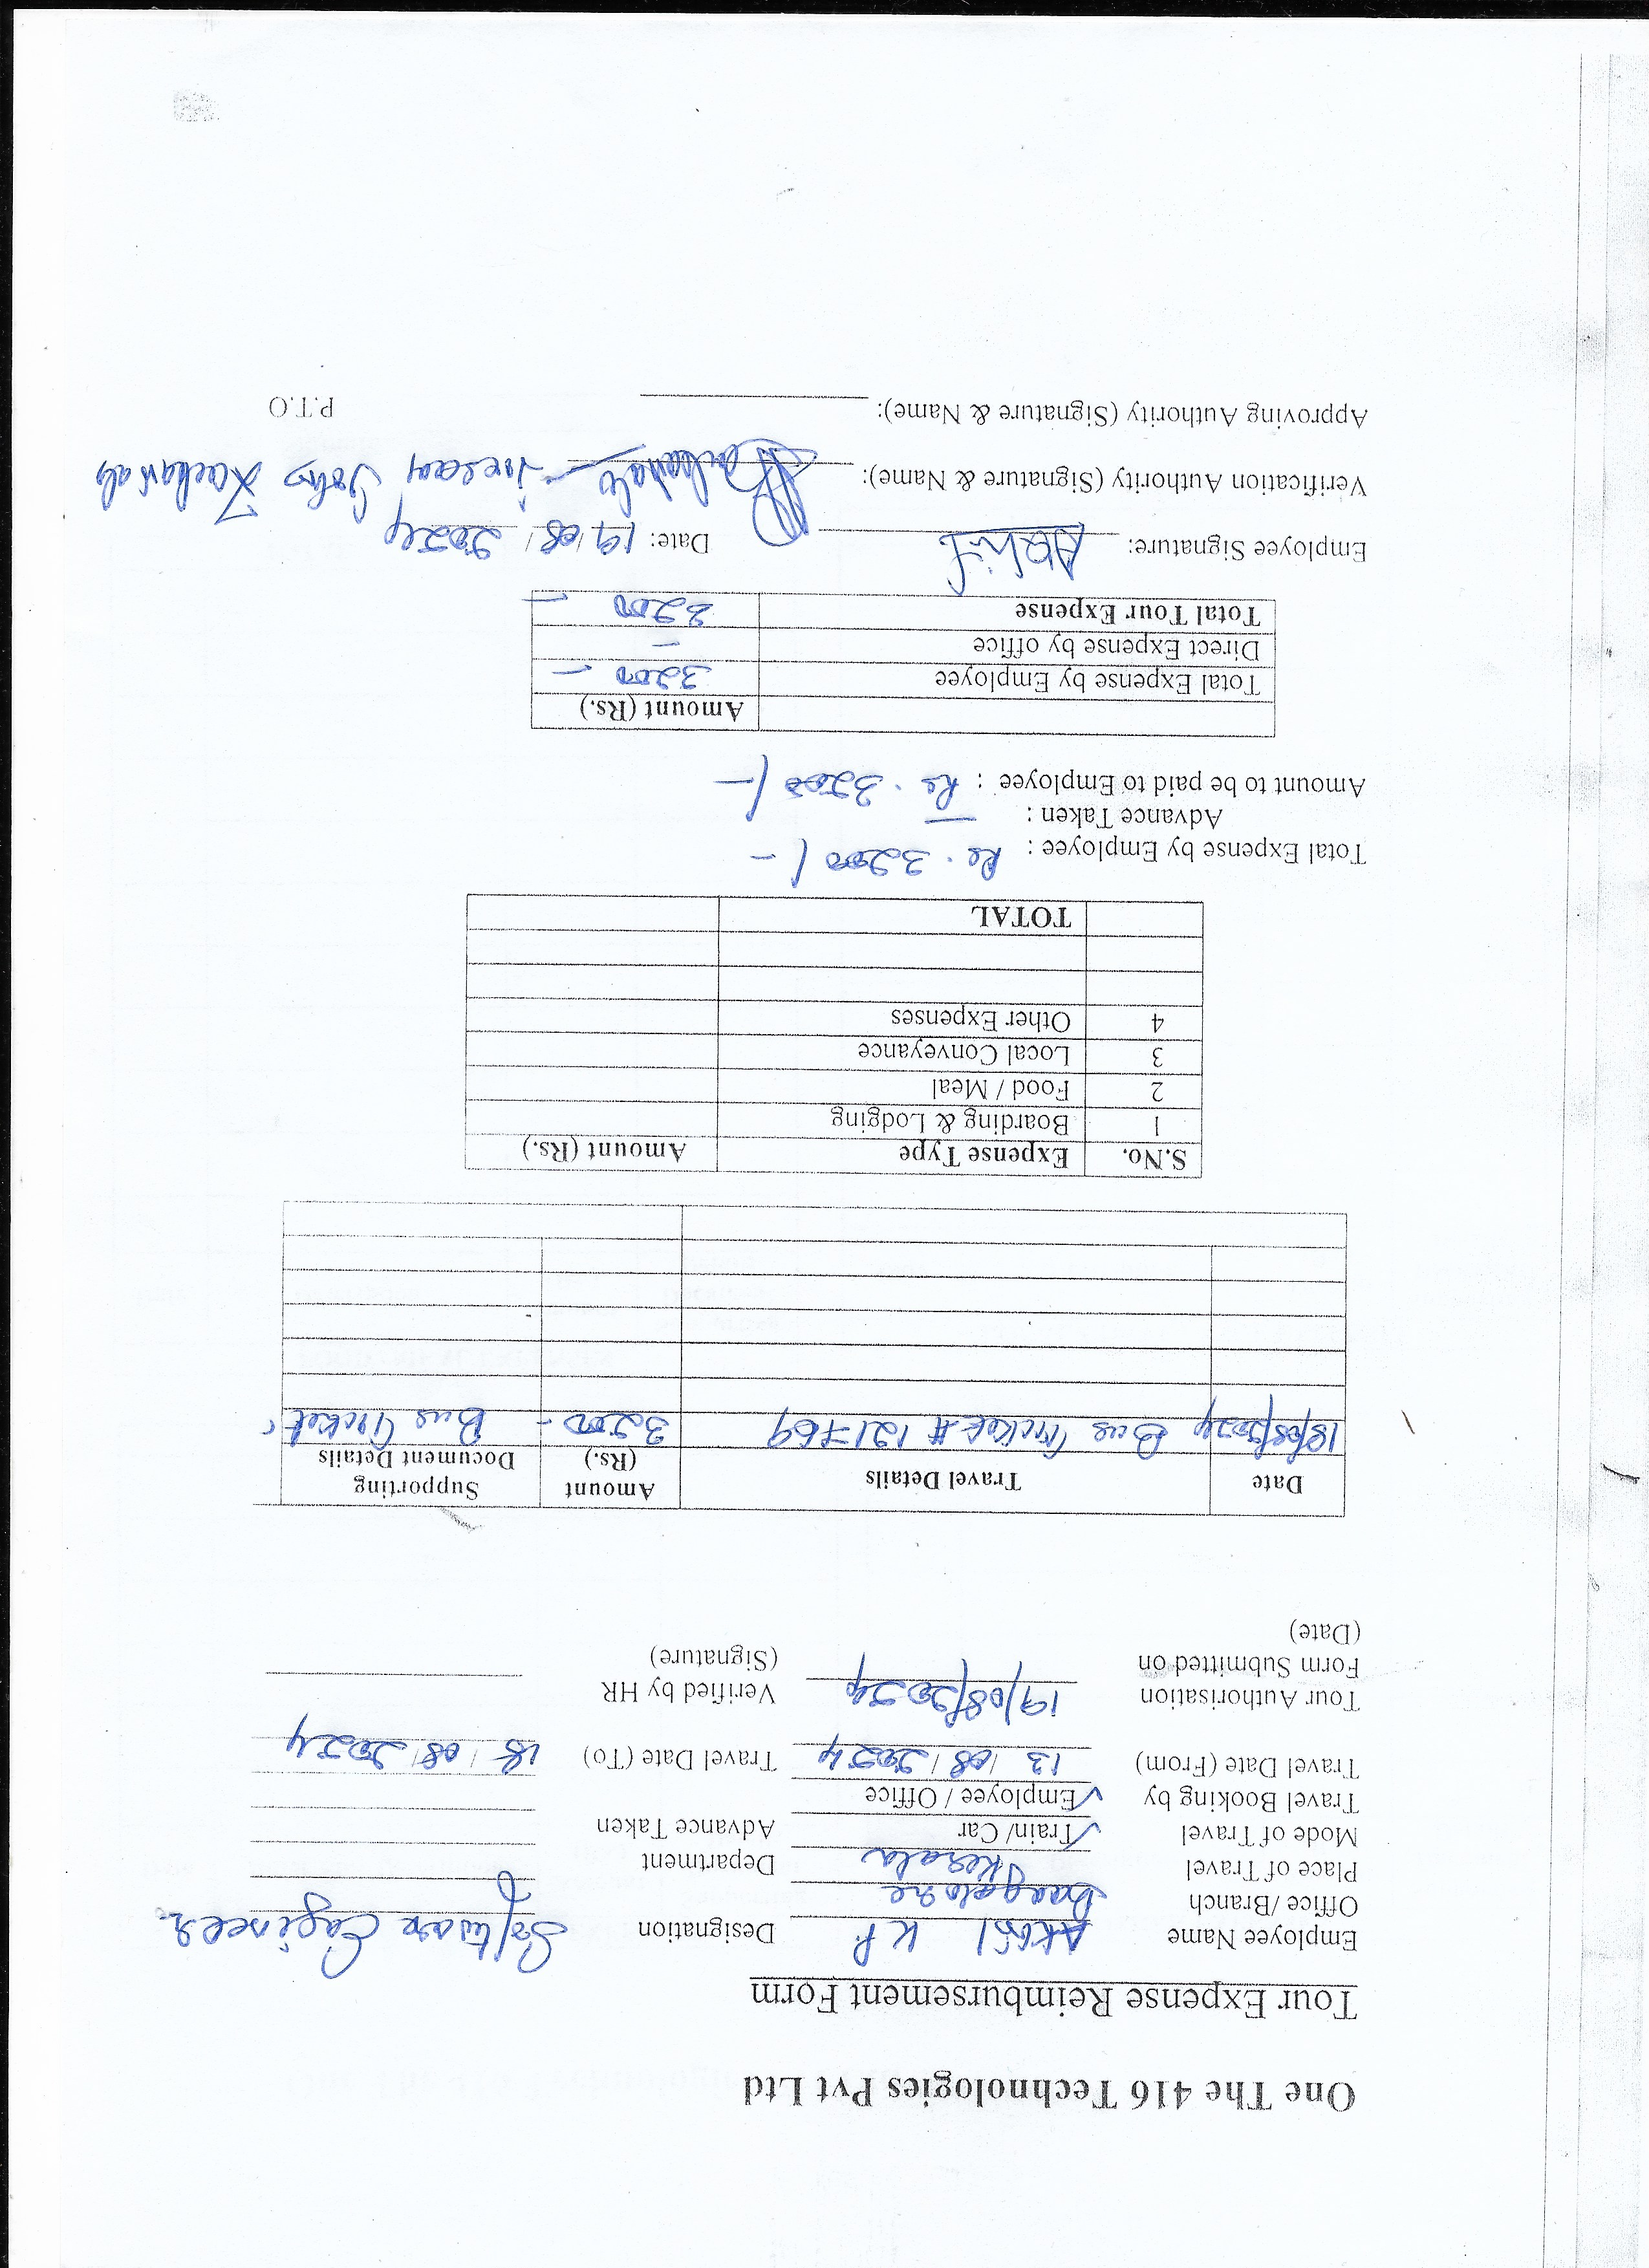 One The 416 Technologies Pvt Ltd
Tour Expense Reimbursement Form
Employee Name Akhil K P. Designation Software Engineer.
Office /Branch Bangalore
Place of Travel Kerala Department
Mode of Travel ✓Train/ Car Advance Taken
Travel Booking by ✓Employee / Office
Travel Date (From) 13 /08/2024 Travel Date (To) /08/2024
Tour Authorisation 19/08/2024 Verified by HR
Form Submitted on (Signature)
(Date)
Date Travel Details Amount (Rs.) Supporting Document Details
18/08/2024 Bus Ticket # 121769 3200 - Bus Ticket
S.No. Expense Type Amount (Rs.)
1 Boarding & Lodging
2 Food / Meal
3 Local Conveyance
4 Other Expenses
TOTAL
Total Expense by Employee : Rs. 3200/-
Advance Taken : —
Amount to be paid to Employee : Rs. 3200/-
Amount (Rs.)
Total Expense by Employee 3200 —
Direct Expense by office —
Total Tour Expense 3200 —
Employee Signature: Akhil Date: 19/08/2024
Verification Authority (Signature & Name): John Zachariah
Approving Authority (Signature & Name):
P.T.O